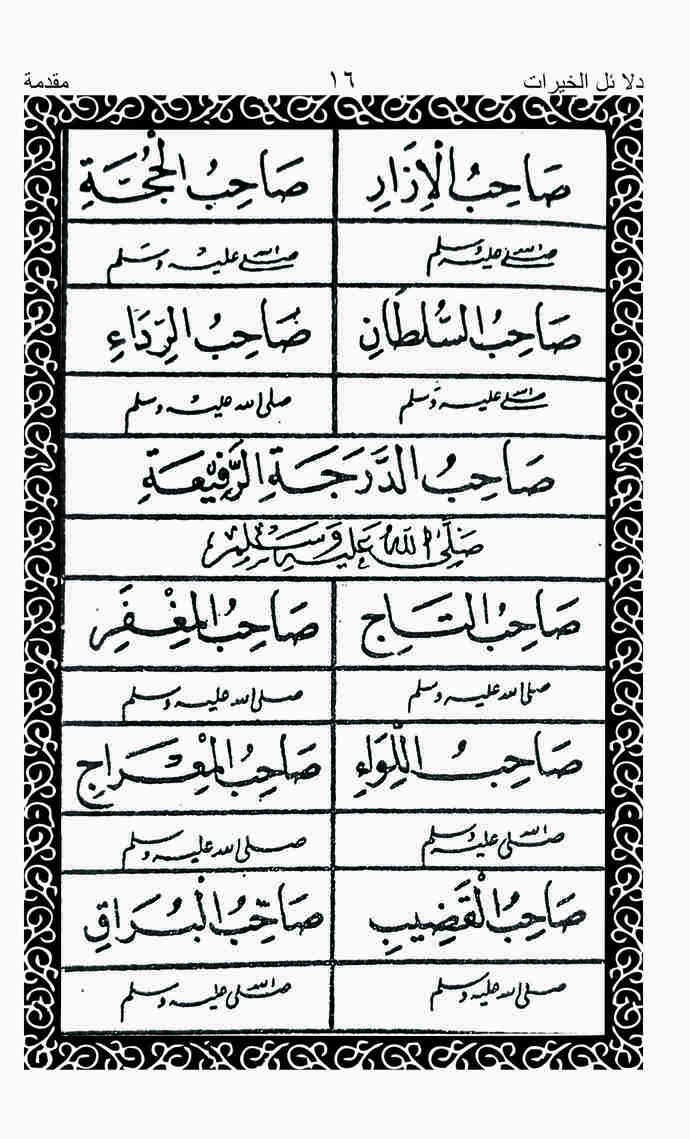 دلائل الخيرات ١٦ مقدمة
صَاحِبُ الْإِزَارِ صَاحِبُ الْحُجَّةِ
صلى الله عليه وسلم صلى الله عليه وسلم
صَاحِبُ السُّلْطَانِ صَاحِبُ الرِّدَاءِ
صلى الله عليه وسلم صلى الله عليه وسلم
صَاحِبُ الدَّرَجَةِ الرَّفِيْعَةِ
صَلَّى اللهُ عَلَيْهِ وَسَلَّمَ
صَاحِبُ التَّاجِ صَاحِبُ الْمِغْفَرِ
صلى الله عليه وسلم صلى الله عليه وسلم
صَاحِبُ اللِّوَاءِ صَاحِبُ الْمِعْرَاجِ
صلى الله عليه وسلم صلى الله عليه وسلم
صَاحِبُ الْقَضِيبِ صَاحِبُ الْبُرَاقِ
صلى الله عليه وسلم صلى الله عليه وسلم